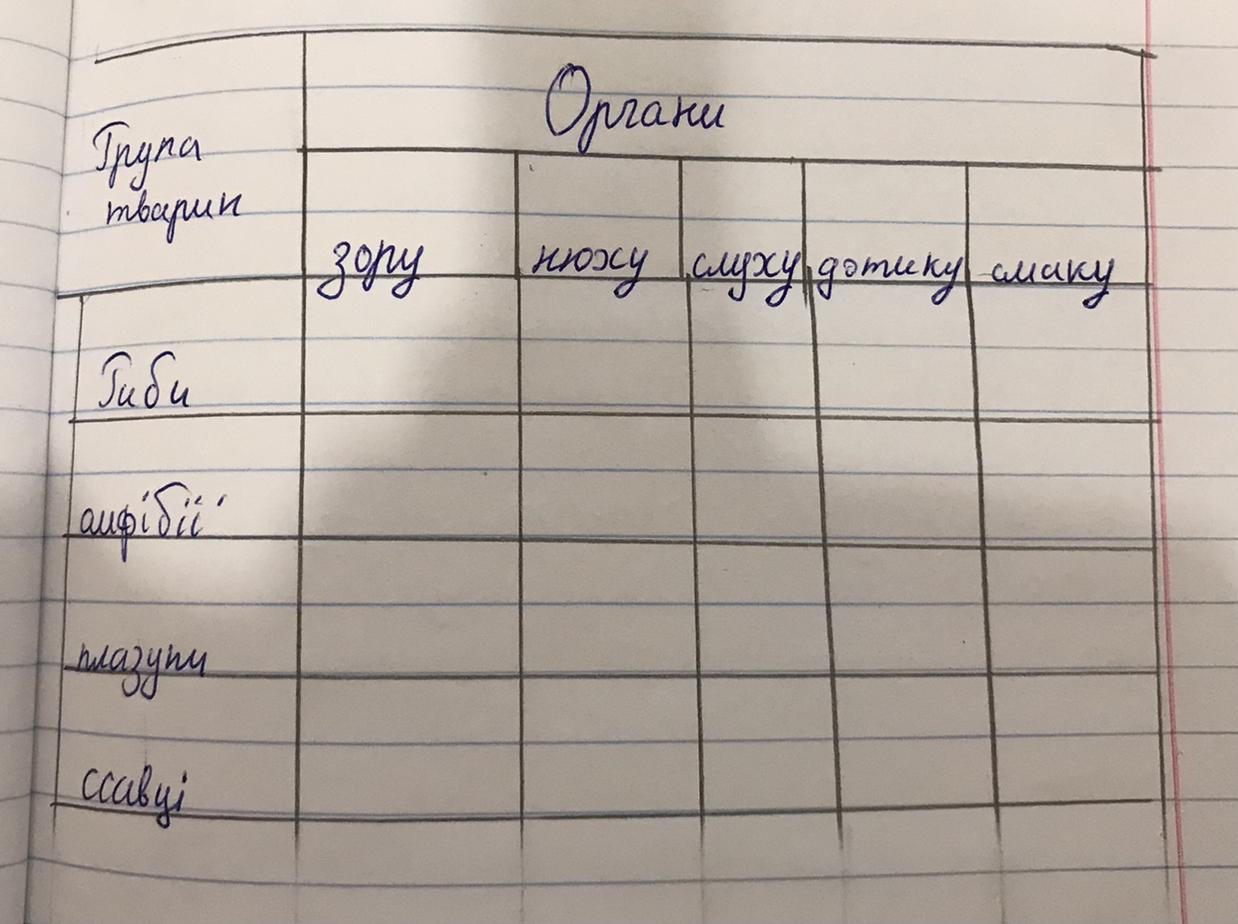 Органи
Група
тварин
зору нюху слуху дотику смаку
Риби
амфібії
плазуни
ссавці